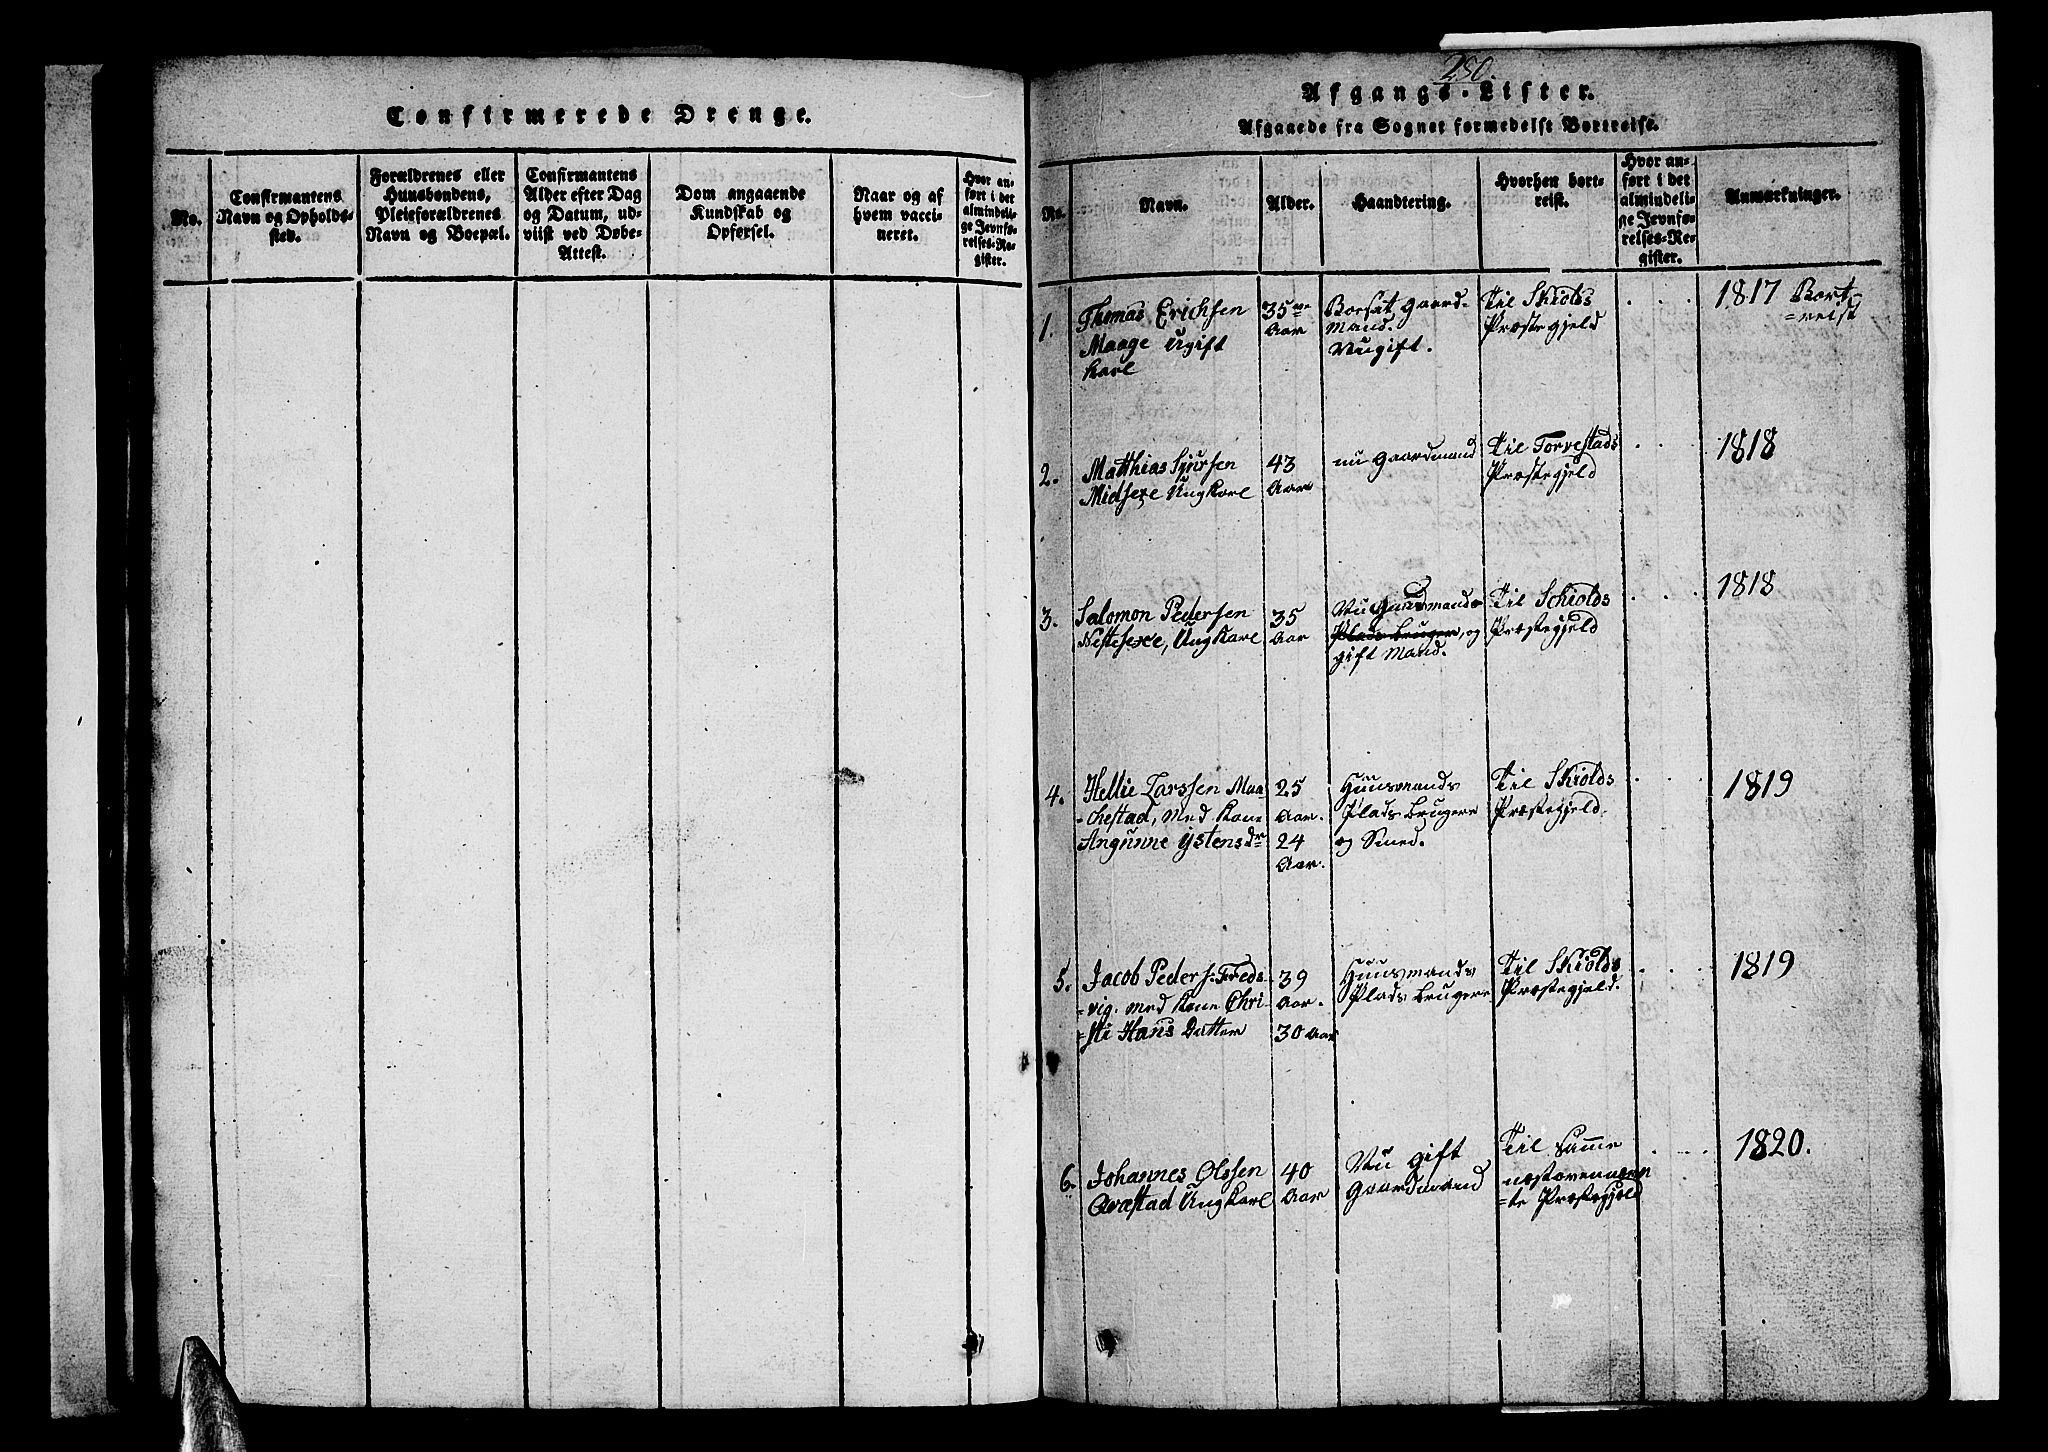 Confirmerede Drenge.
No.
Confirmantens
Navn og Opholds-
sted.
Forældrenes eller
Huusbondens,
Pleieforældrenes
Navn og Boepæl.
Confirmantens
Alder efter Dag
og Datum, ud-
viist ved Døbe-
Attest.
Dom angaaende
Kundskab og
Opførsel.
Naar og af
hvem vacci-
neret.
Hvor an-
ført i det
almindeli-
ge Jevnfø-
relses-Re-
gister.
250.
Afgangs-Lister.
Afgaaede fra Sognet formedelst Bortreise.
No.
Navn.
Alder.
Haandtering.
Hvorhen bort-
reist.
Hvor an-
ført i det
almindeli-
ge Jevnfø-
relses-Re-
gister.
Anmærkninger.
1.
Thomas Erichsen
Maage Ugift
Karl
35
Aar
Bosat Gaard-
Mand.
Til Skiolds
Præstegjeld
1817 Bort-
=reist
2.
Matthias Sjursen
Midsexe Ung Karl
43
Aar
nu Gaardmand
Til Torvestads
Præstegjeld
1818
3.
Salomon Pedersen
Nestesexe, Ung Karl
35
Aar
Nu Huusmands
Plads bruger, og
gift Mand.
Til Schiolds
Præstegjeld
1818
4.
Hellie Larssen Maa-
=chestad, Med Kone
Angunne Ystensdr
25
Aar.
24
Aar.
Huusmands
Plads bruger
og Smed.
Til Skiolds
Præstegjeld.
1819
5.
Jacob Peders: Freds-
=vig. med Kone Chri-
=sti Hans Datter
39
Aar.
30 Aar
Huusmands
Plads bruger
Til Skiolds
Præstegjeld.
1819
6.
Johannes Olssen
Qvæstad Ung Karl
40
Aar
Nu gift
Gaardmand
Til Samme
næstovennævn
=te Præstegjeld
1820.